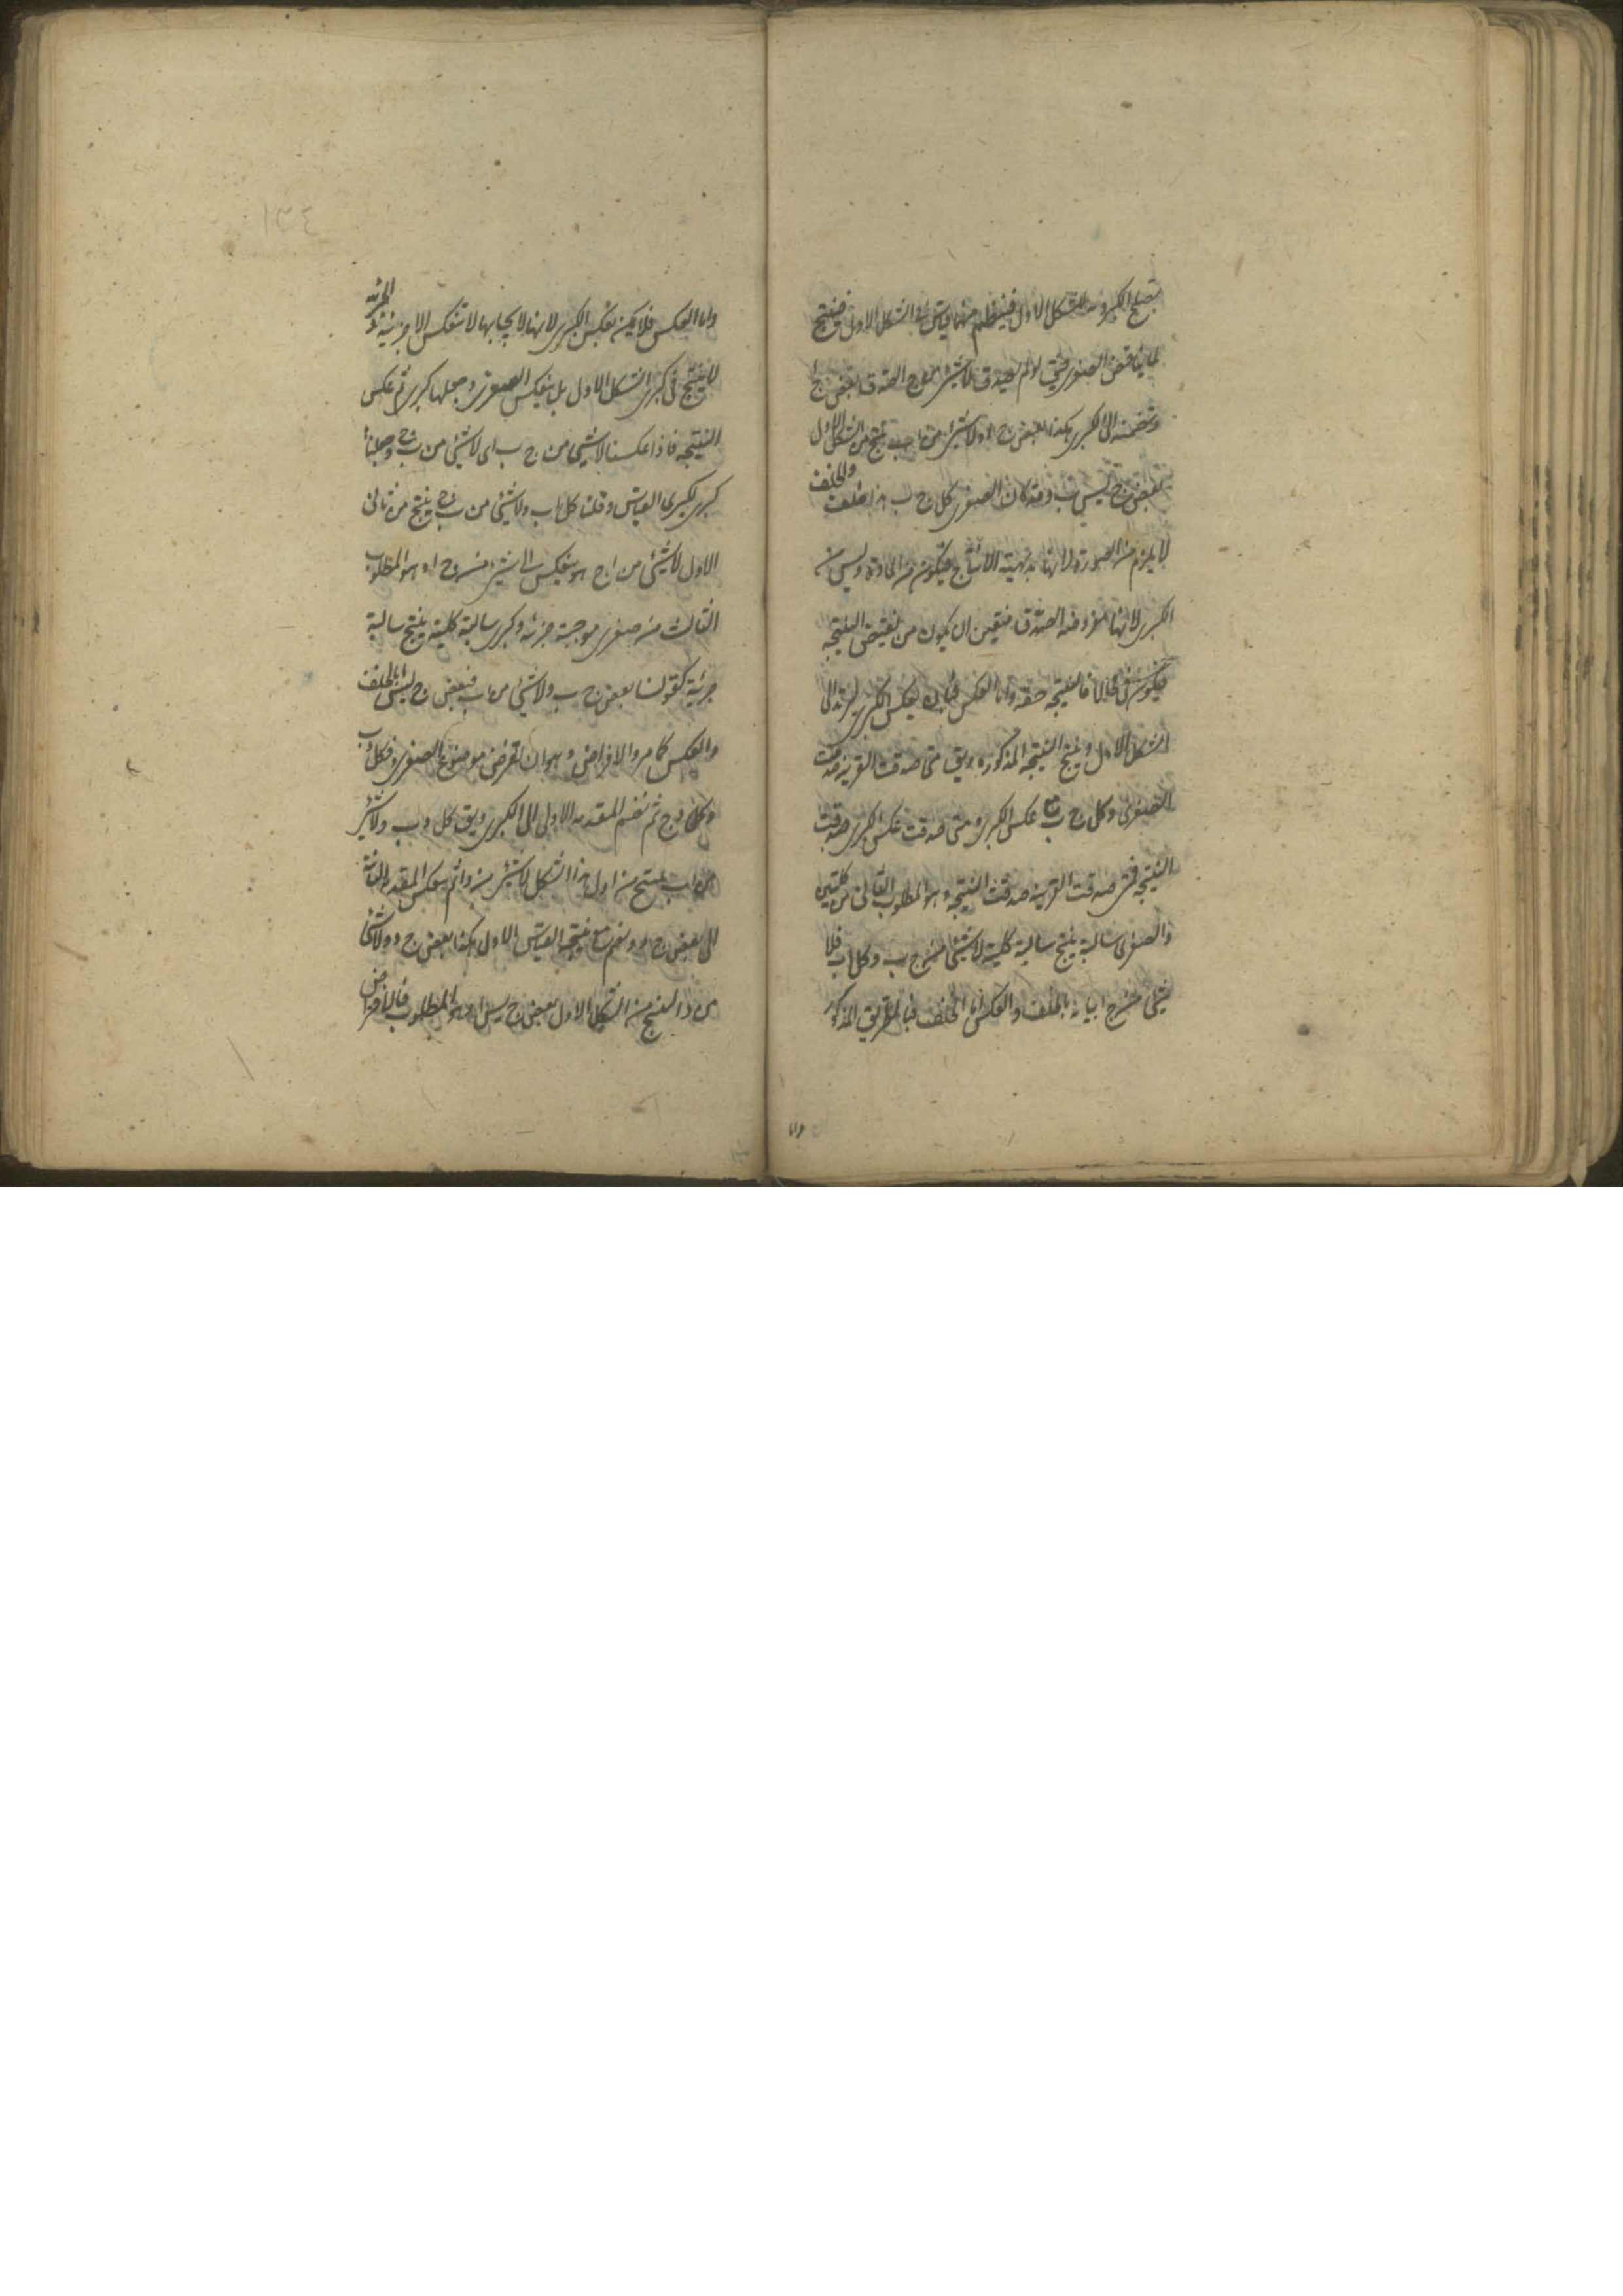 تصلح لكبروية الشكل الاول فينتظم منهما قياس في الشكل الاول فينتج
لما يناقض الصغرى فيق لو لم يصدق لا شئ من ج ا لصدق بعض ج ا
ونضمه الى الكبرى هكذا بعض ج ا ولا شئ من ا ب ينتج من الشكل الاول
بعض ج ليس ب وقد كان الصغرى كل ج ب هذا خلف والخلف
لا يلزم من الصورة لانها بديهية الانتاج فيكون من المادة وليس من
الكبرى لانها مفروضة الصدق فتعين ان يكون من نقيض النتيجة
فيكون محالا فالنتيجة حقة واما العكس فبان يعكس الكبرى ليرتد الى
الشكل الاول وينتج النتيجة المذكورة ويق متى صدقت القرينة صدقت
الصغرى وكل ج ب مع عكس الكبرى ومتى صدقت عكس الكبرى صدقت
النتيجة فمتى صدقت القرينة صدقت النتيجة وهو المطلوب الثانى من كليتين
والصغرى سالبة ينتج سالبة كلية لا شئ من ج ب وكل ا ب فلا
شئ من ج ا بيانه بالخلف والعكس اما الخلف فبالطريق المذكور
واما
واما العكس فلا يمكن بعكس الكبرى لانها لايجابها لا تنعكس الا جزئية والجزئية
لا ينتج فى كبرى الشكل الاول بل بعكس الصغرى وجعلها كبرى ثم عكس
النتيجة فاذا عكسنا لا شئ من ج ب الى لا شئ من ب ج وجعلناها
كبرى لكبرى القياس وقلنا كل ا ب ولا شئ من ب ج ينتج من ثانى
الاول لا شئ من ا ج وهو ينعكس الى لا شئ من ج ا وهو المطلوب
الثالث من صغرى موجبة جزئية وكبرى سالبة كلية ينتج سالبة
جزئية كقولنا بعض ج ب ولا شئ من ا ب فبعض ج ليس ا بالخلف
والعكس كما مر والافراض وهو ان نفرض موضوع الصغرى د فكل د ب
وكل د ج ثم نضم المقدمة الاولى الى الكبرى ويق كل د ب ولا شئ
من ا ب ينتج من اول هذا الشكل لا شئ من د ا ثم بعكس المقدمة الثانية
الى بعض ج د ونضم مع نتيجة القياس الاول هكذا بعض ج د ولا شئ
من د ا لينتج من الشكل الاول بعض ج ليس ا وهو المطلوب فالافتراض